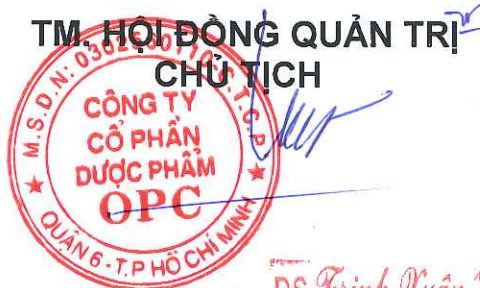 TM. HỘI ĐỒNG QUẢN TRỊ
CHỦ TỊCH
M.S.D.N: 0302560110-C.T.C.P
CÔNG TY
CỔ PHẦN
DƯỢC PHẨM
OPC
QUẬN 6 - T.P HỒ CHÍ MINH
DS Trịnh Xuân